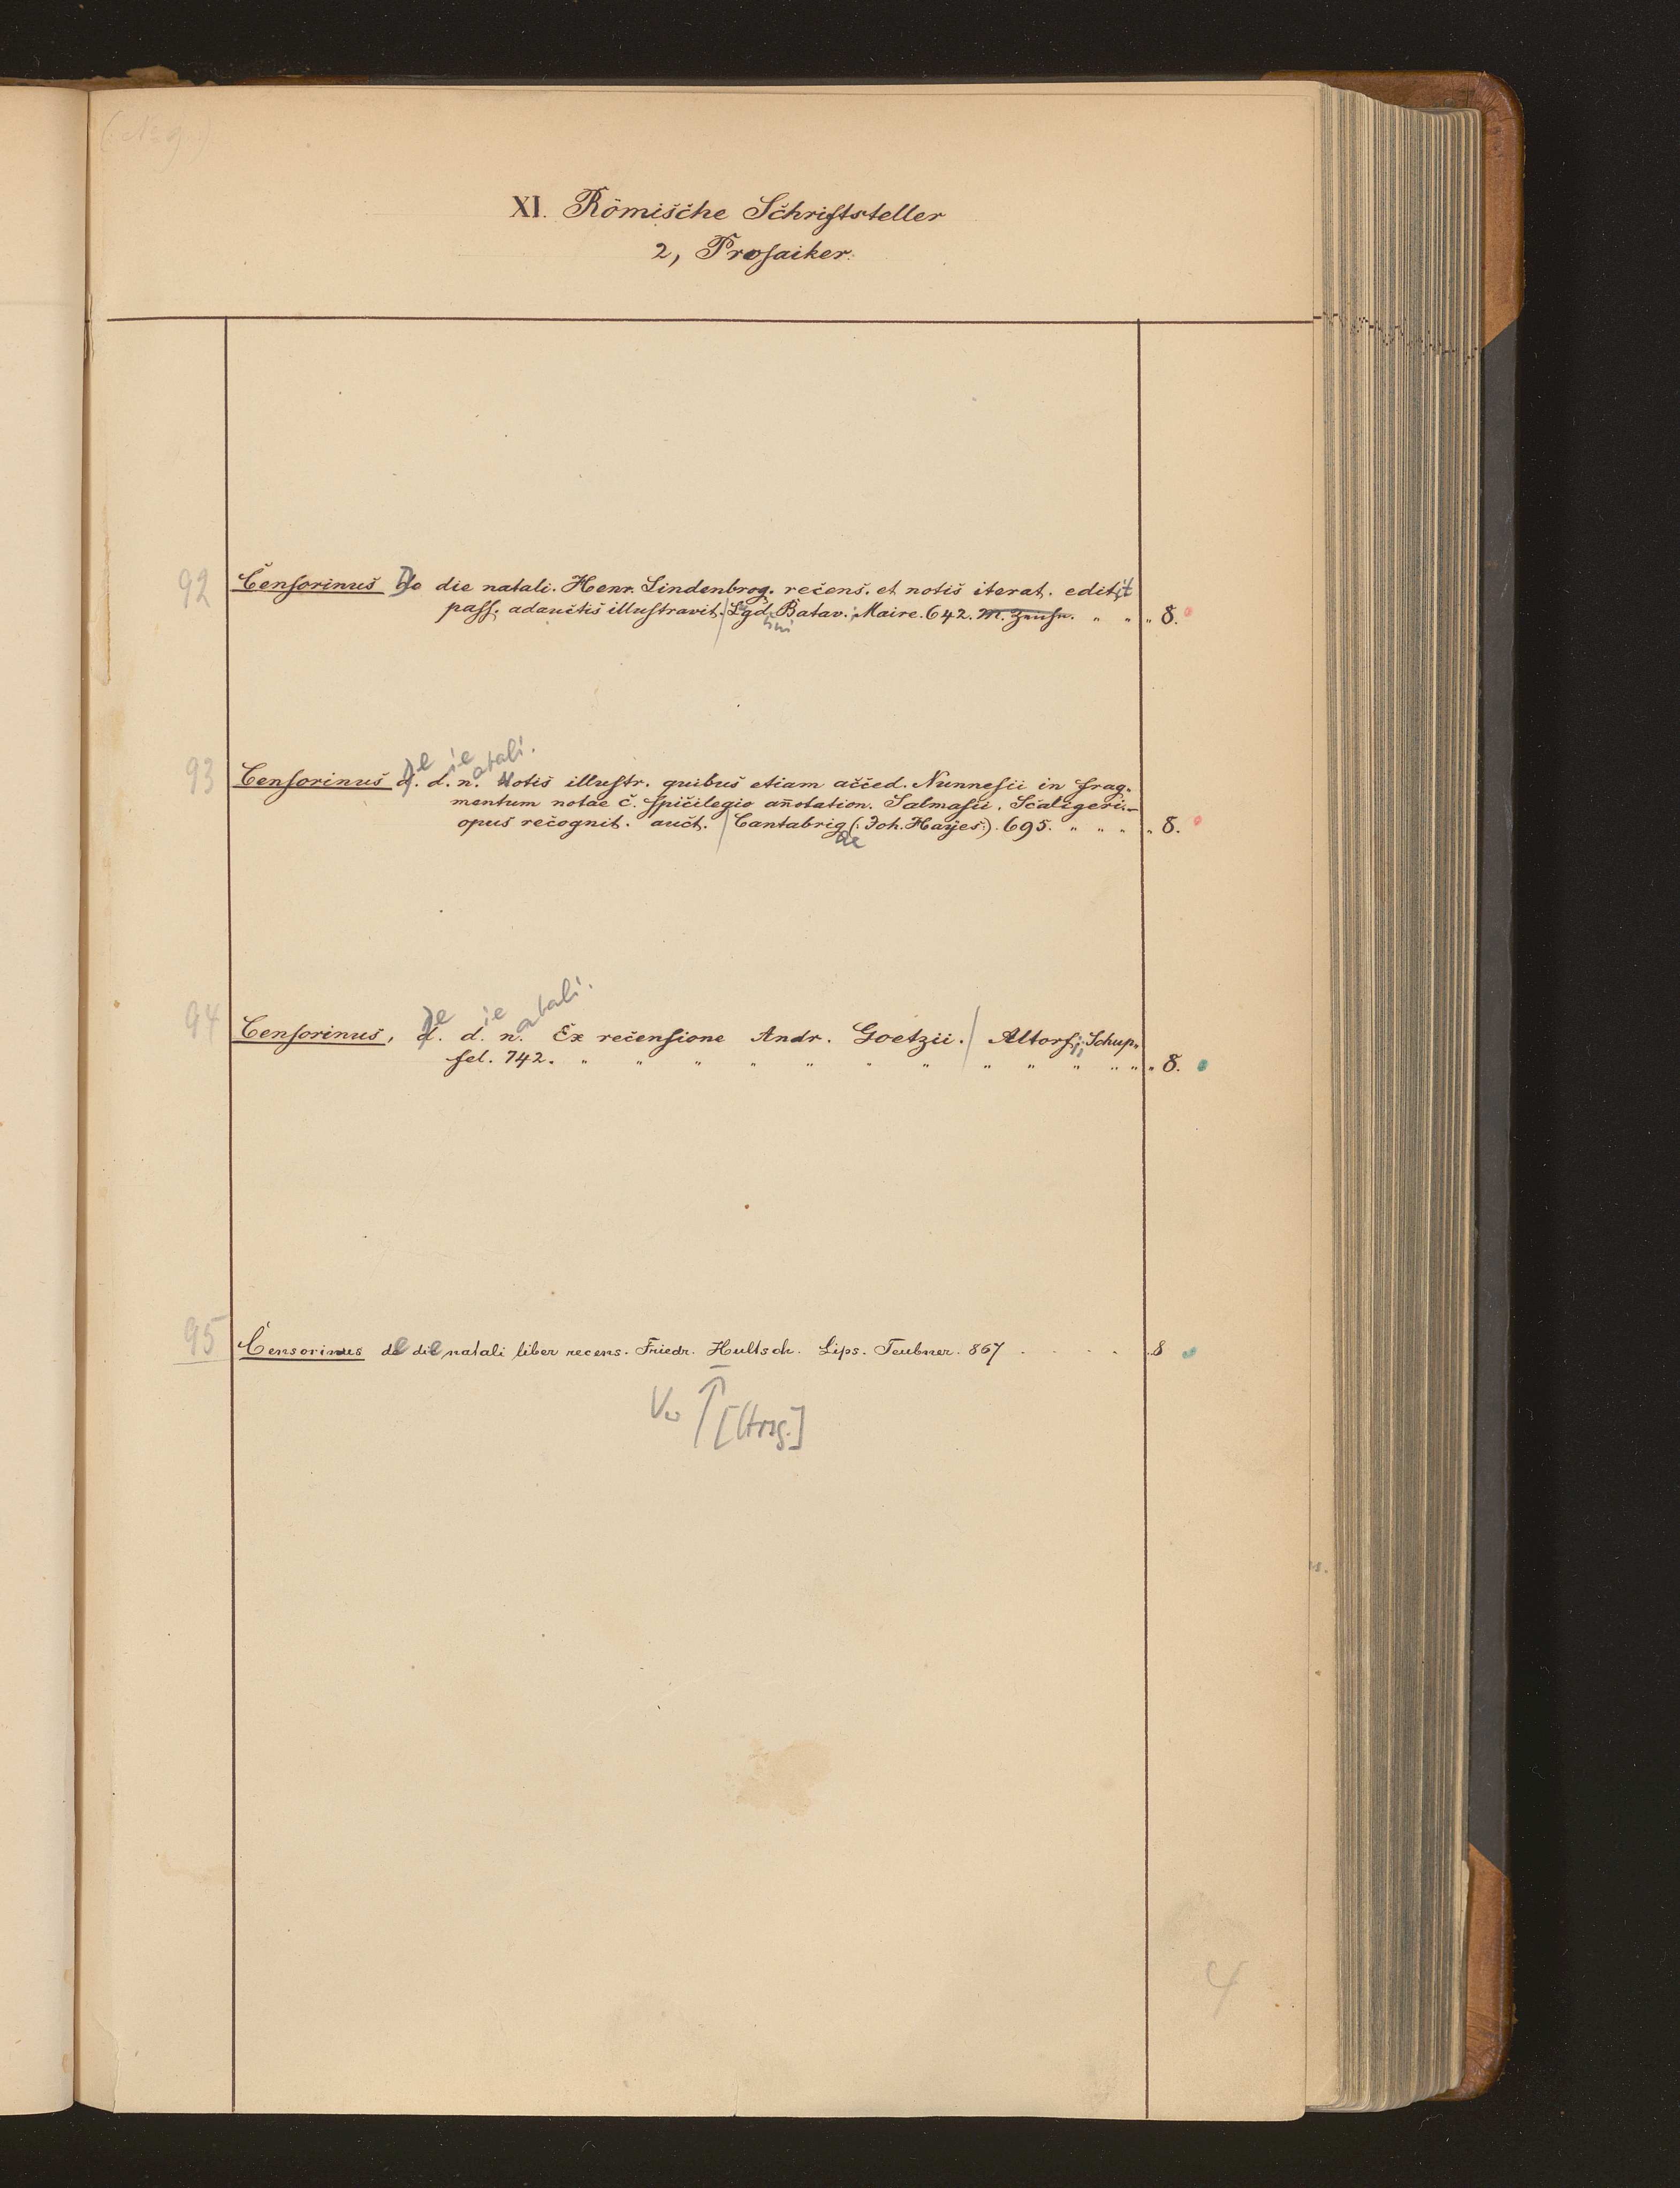 XI. Römische Schriftsteller
2, Prosaiker.
92 Censorinus De die natali. Henr. Lindenbrog. recens. et notis iterat. edit. it
pass. adauctis illustravit. / Lgd. Batav. Maire. 642. " " " 8.
93 Censorinus d. d. n. Notis illustr. quibus etiam acced. Nunnesii in frag-
mentum notae c. spicilegio añotation. Salmasii. Scaligeri.-
opus recognit. auct. / Cantabrig (: Joh. Hayes:). 695. " " " " 8.
ae
94 Censorinus, d. d. n. Ex recensione Andr. Goetzii. / Altorfii Schup-
fel. 742. " " " " " " " " " " " " " 8.
95 Censorinus de die natali liber recens. Friedr. Hultsch. Lips. Teubner. 867 . . . . . 8
4